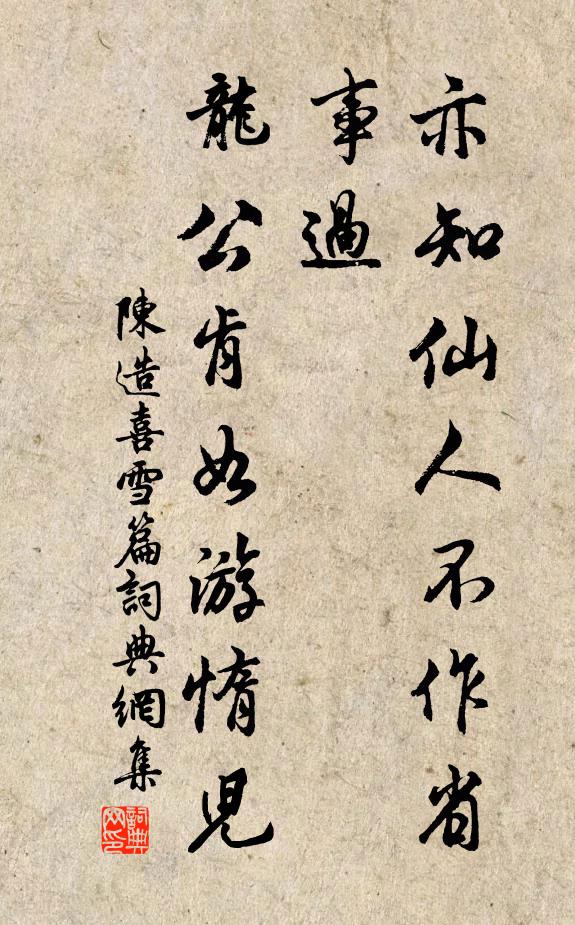 亦知仙人不作省
事過
龍公肯如游惰兒
陳造喜雪篇詞典網集
詞典網印